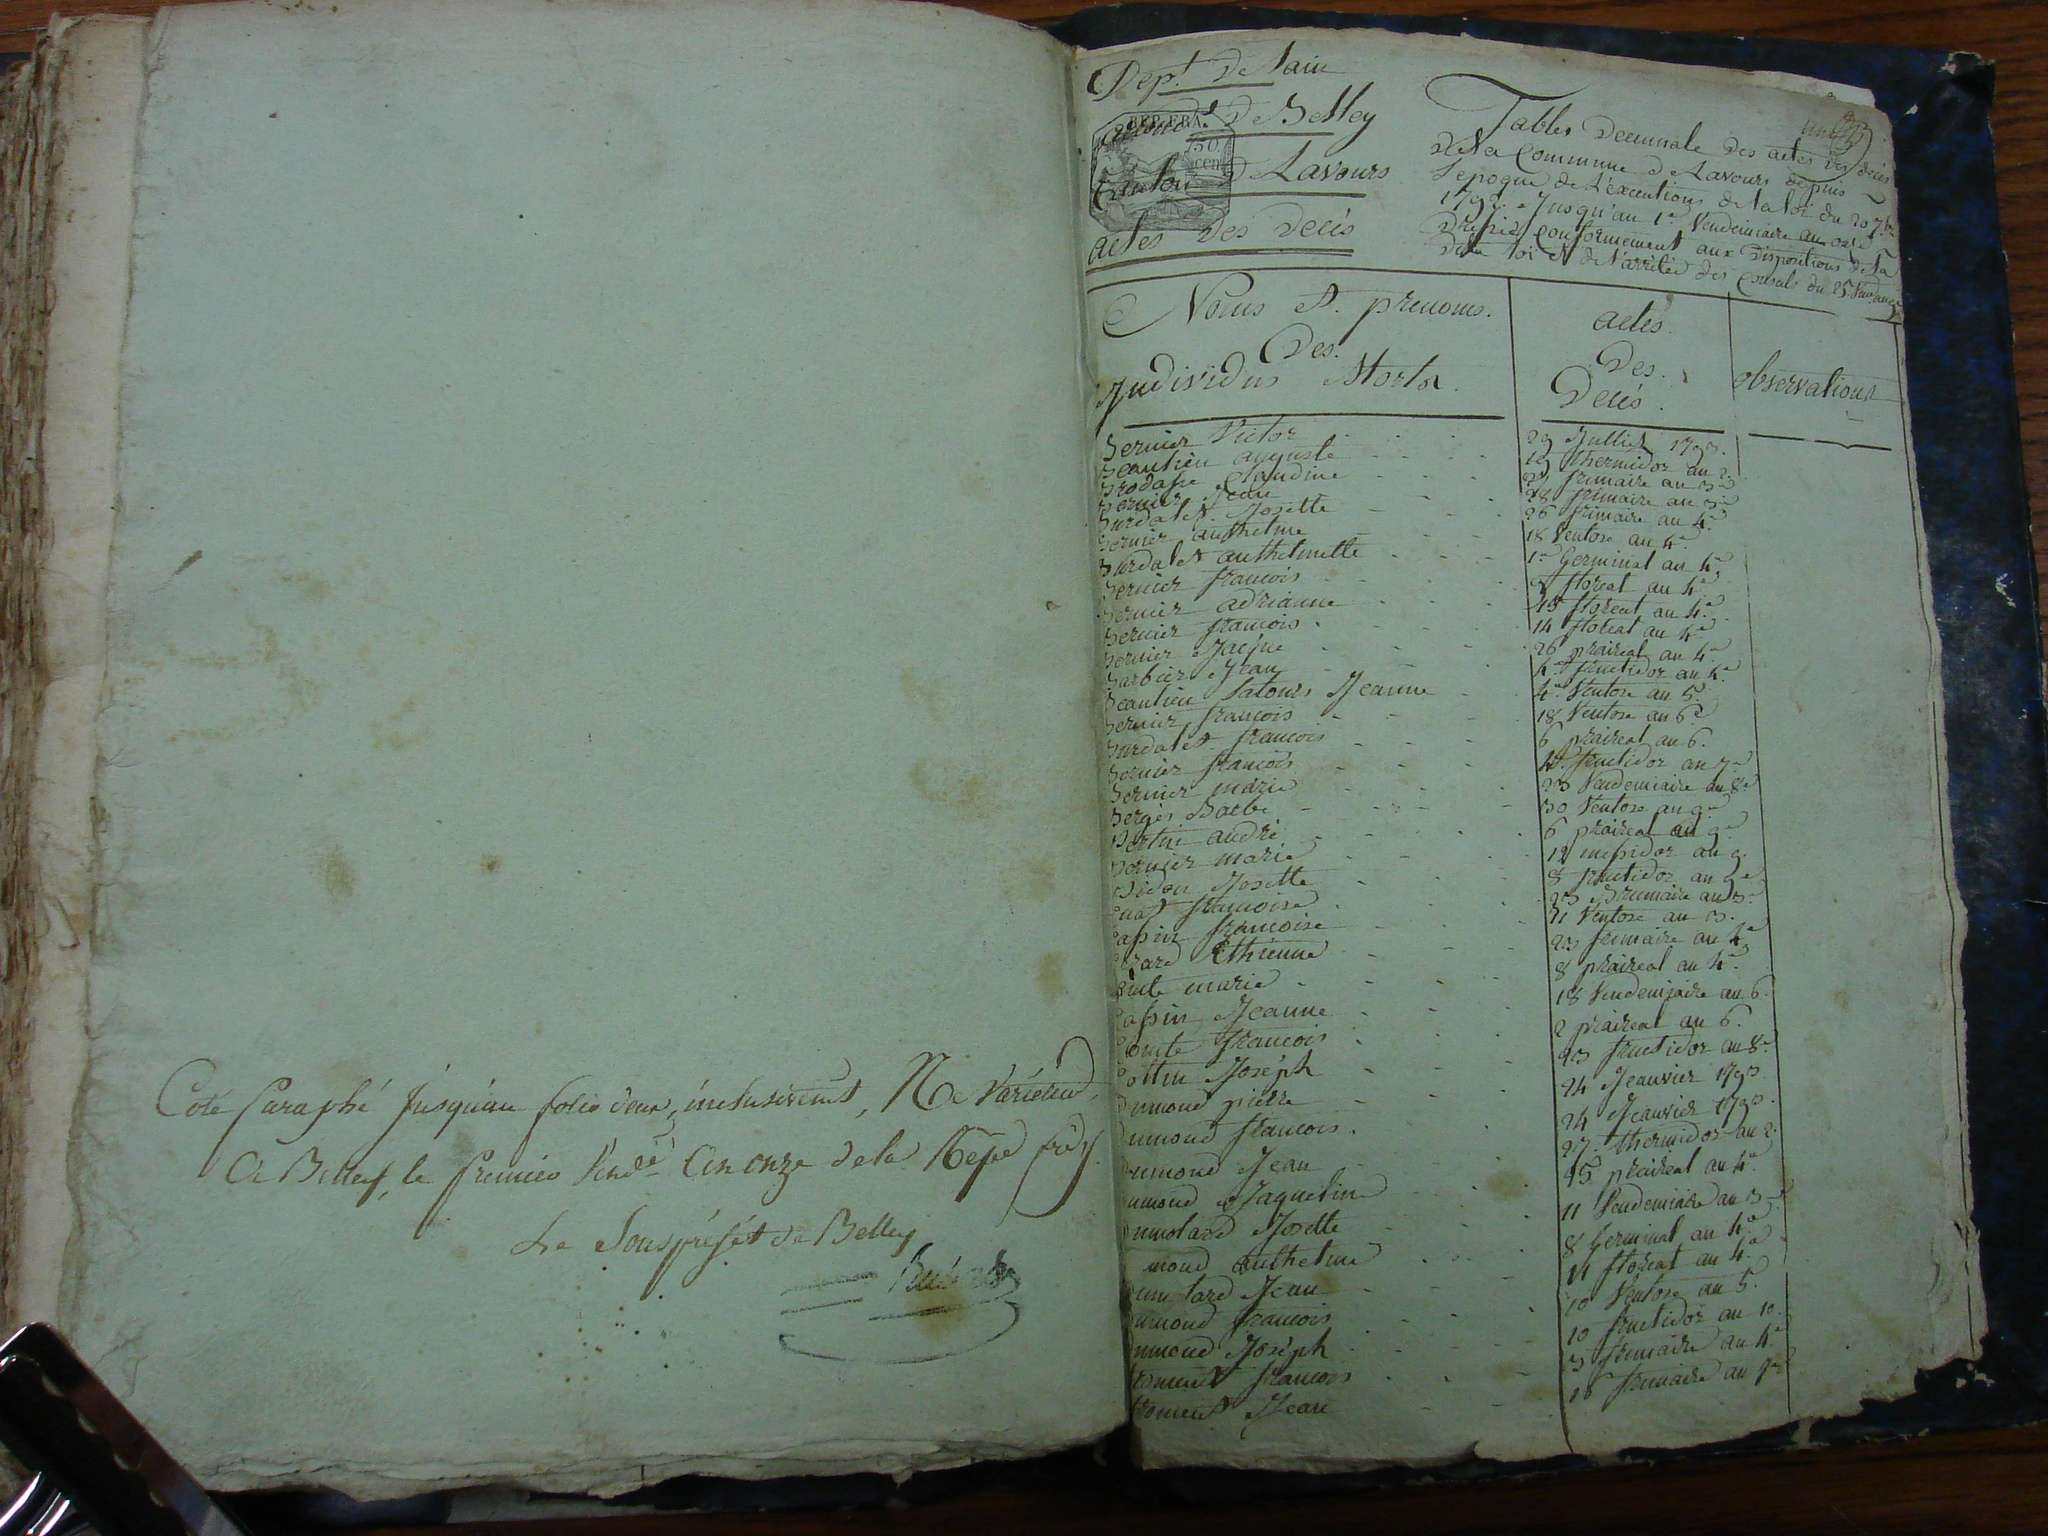 Coté Paraphé jusqu'au folio deux, inclusivement, Ne Varietur,
A Belley, le premier Vendre an onze de la Rep
Le Souspréfét de Belley
Dept. De Lain
De Belley
REP. FRA.
50
cen
Canton De Lavours
actes Des Decés
Tables Decennale Des actes Des decés
De La Commune De Lavours depuis
L'epoque de L'executions de la loi du 20 7bre
1792. Jusqu'au 1er Vendemiaire an onze
Dressé Conformement aux Dispositions de La
Ditte loi et de l'arrêtée des Consuls du 25 Vend
Noms et prenoms.
Des.
Individus Morts.
actes.
Des.
Decés.
observations
Bernier Victor 29 Julliet 1793.
Beaulieu auguste 19 thermidor an 2.
Brodasse Claudine frimaire an 3e
Bernier Jean 28 frimaire an 3e
Burdalet Josette 26 frimaire an 4e
Bernier anthelme 18 Ventose an 4e
Burdalet anthelmette 1er Germinal an 4e
Bernier francois floreal an 4e
Bernier adrianne 15 floreal an 4e
Bernier francois. 14 floreal an 4e
Bernier Jacque 26 prairial an 4e
Barbier Jean 4e fructidor an 4e
Beaulieu Latours Jeanne 4e Ventose an 5.
Bernier francois 18 Ventose an 6e
Burdalet francois 6 praireal an 6.
Bernier francois fructidor an 7e
Bernier marie 23 Vendemiaire an 8e
Berges Barbe 30 Ventose an 9e
Bertin andré 6 praireal an 9e
Bernier marie 12 messidor an 9.
Bidon Josette 8 fructidor an 9e
francoise 23 Brumaire an 3e
Cassin francoise 21 Ventose an 3.
Ethienne 23 frimaire an 4e
Comte marie 8 praireal an 4e
Cassin Jeanne 18 Vendemiaire an 6.
Comte francois 2 praireal an 6.
Cottin Joseph 23 fructidor an 8e
Dumond pierre 24 Jeanvier 1793
Dumond francois. 24 Jeanvier 1793.
Dumond Jean 27. thermidor an 2.
Dumond Jaqueline 25 praireal an 4e
Dumolard Josette 11 Vendemiaire an 3e
mond anthelme 8 Germinal an 4e
Dumolard Jean 21 floreal an 4e
Dumond francois 10 Ventose an 5.
Dumond Joseph 10 fructidor an 10.
froment francois 3 frimaire an 4e
froment Jean frimaire an